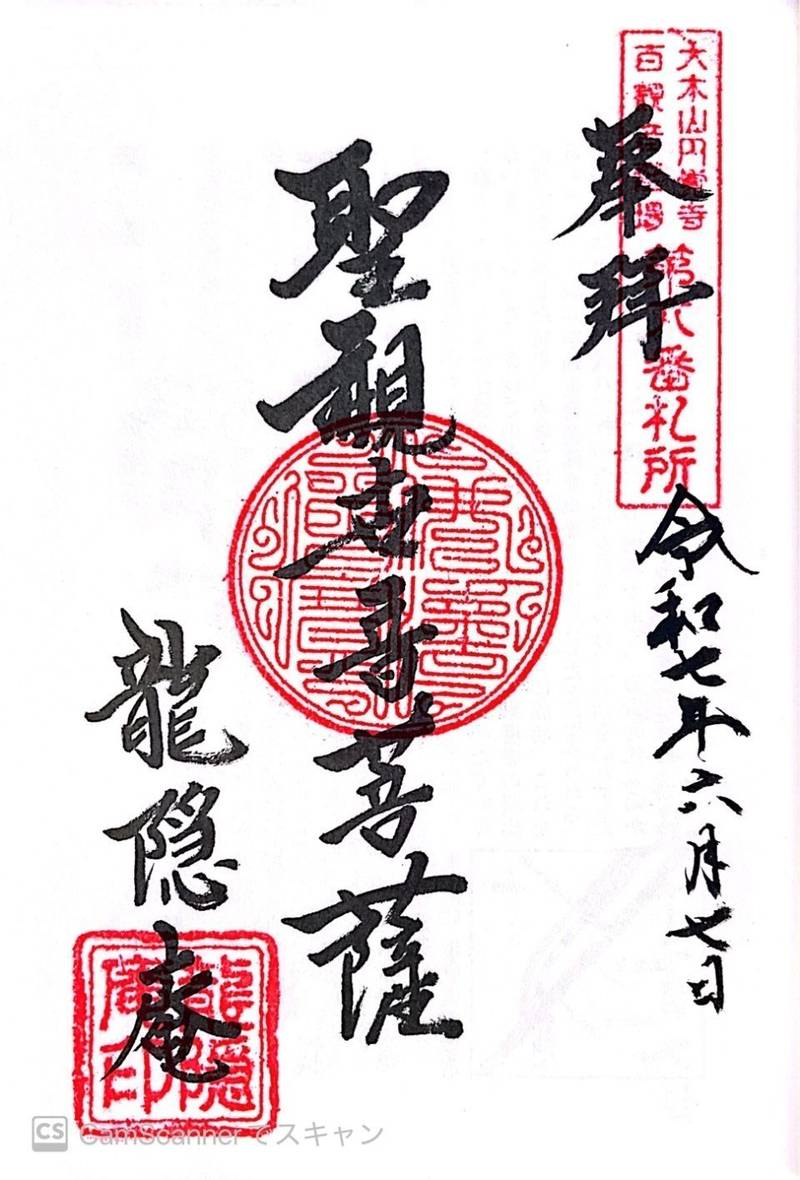 大本山円覚寺
百観音霊場
第八番札所
奉拝
令和七年六月七日
聖観世音菩薩
龍隠庵
龍隠
庵印
CS CamScannerでスキャン